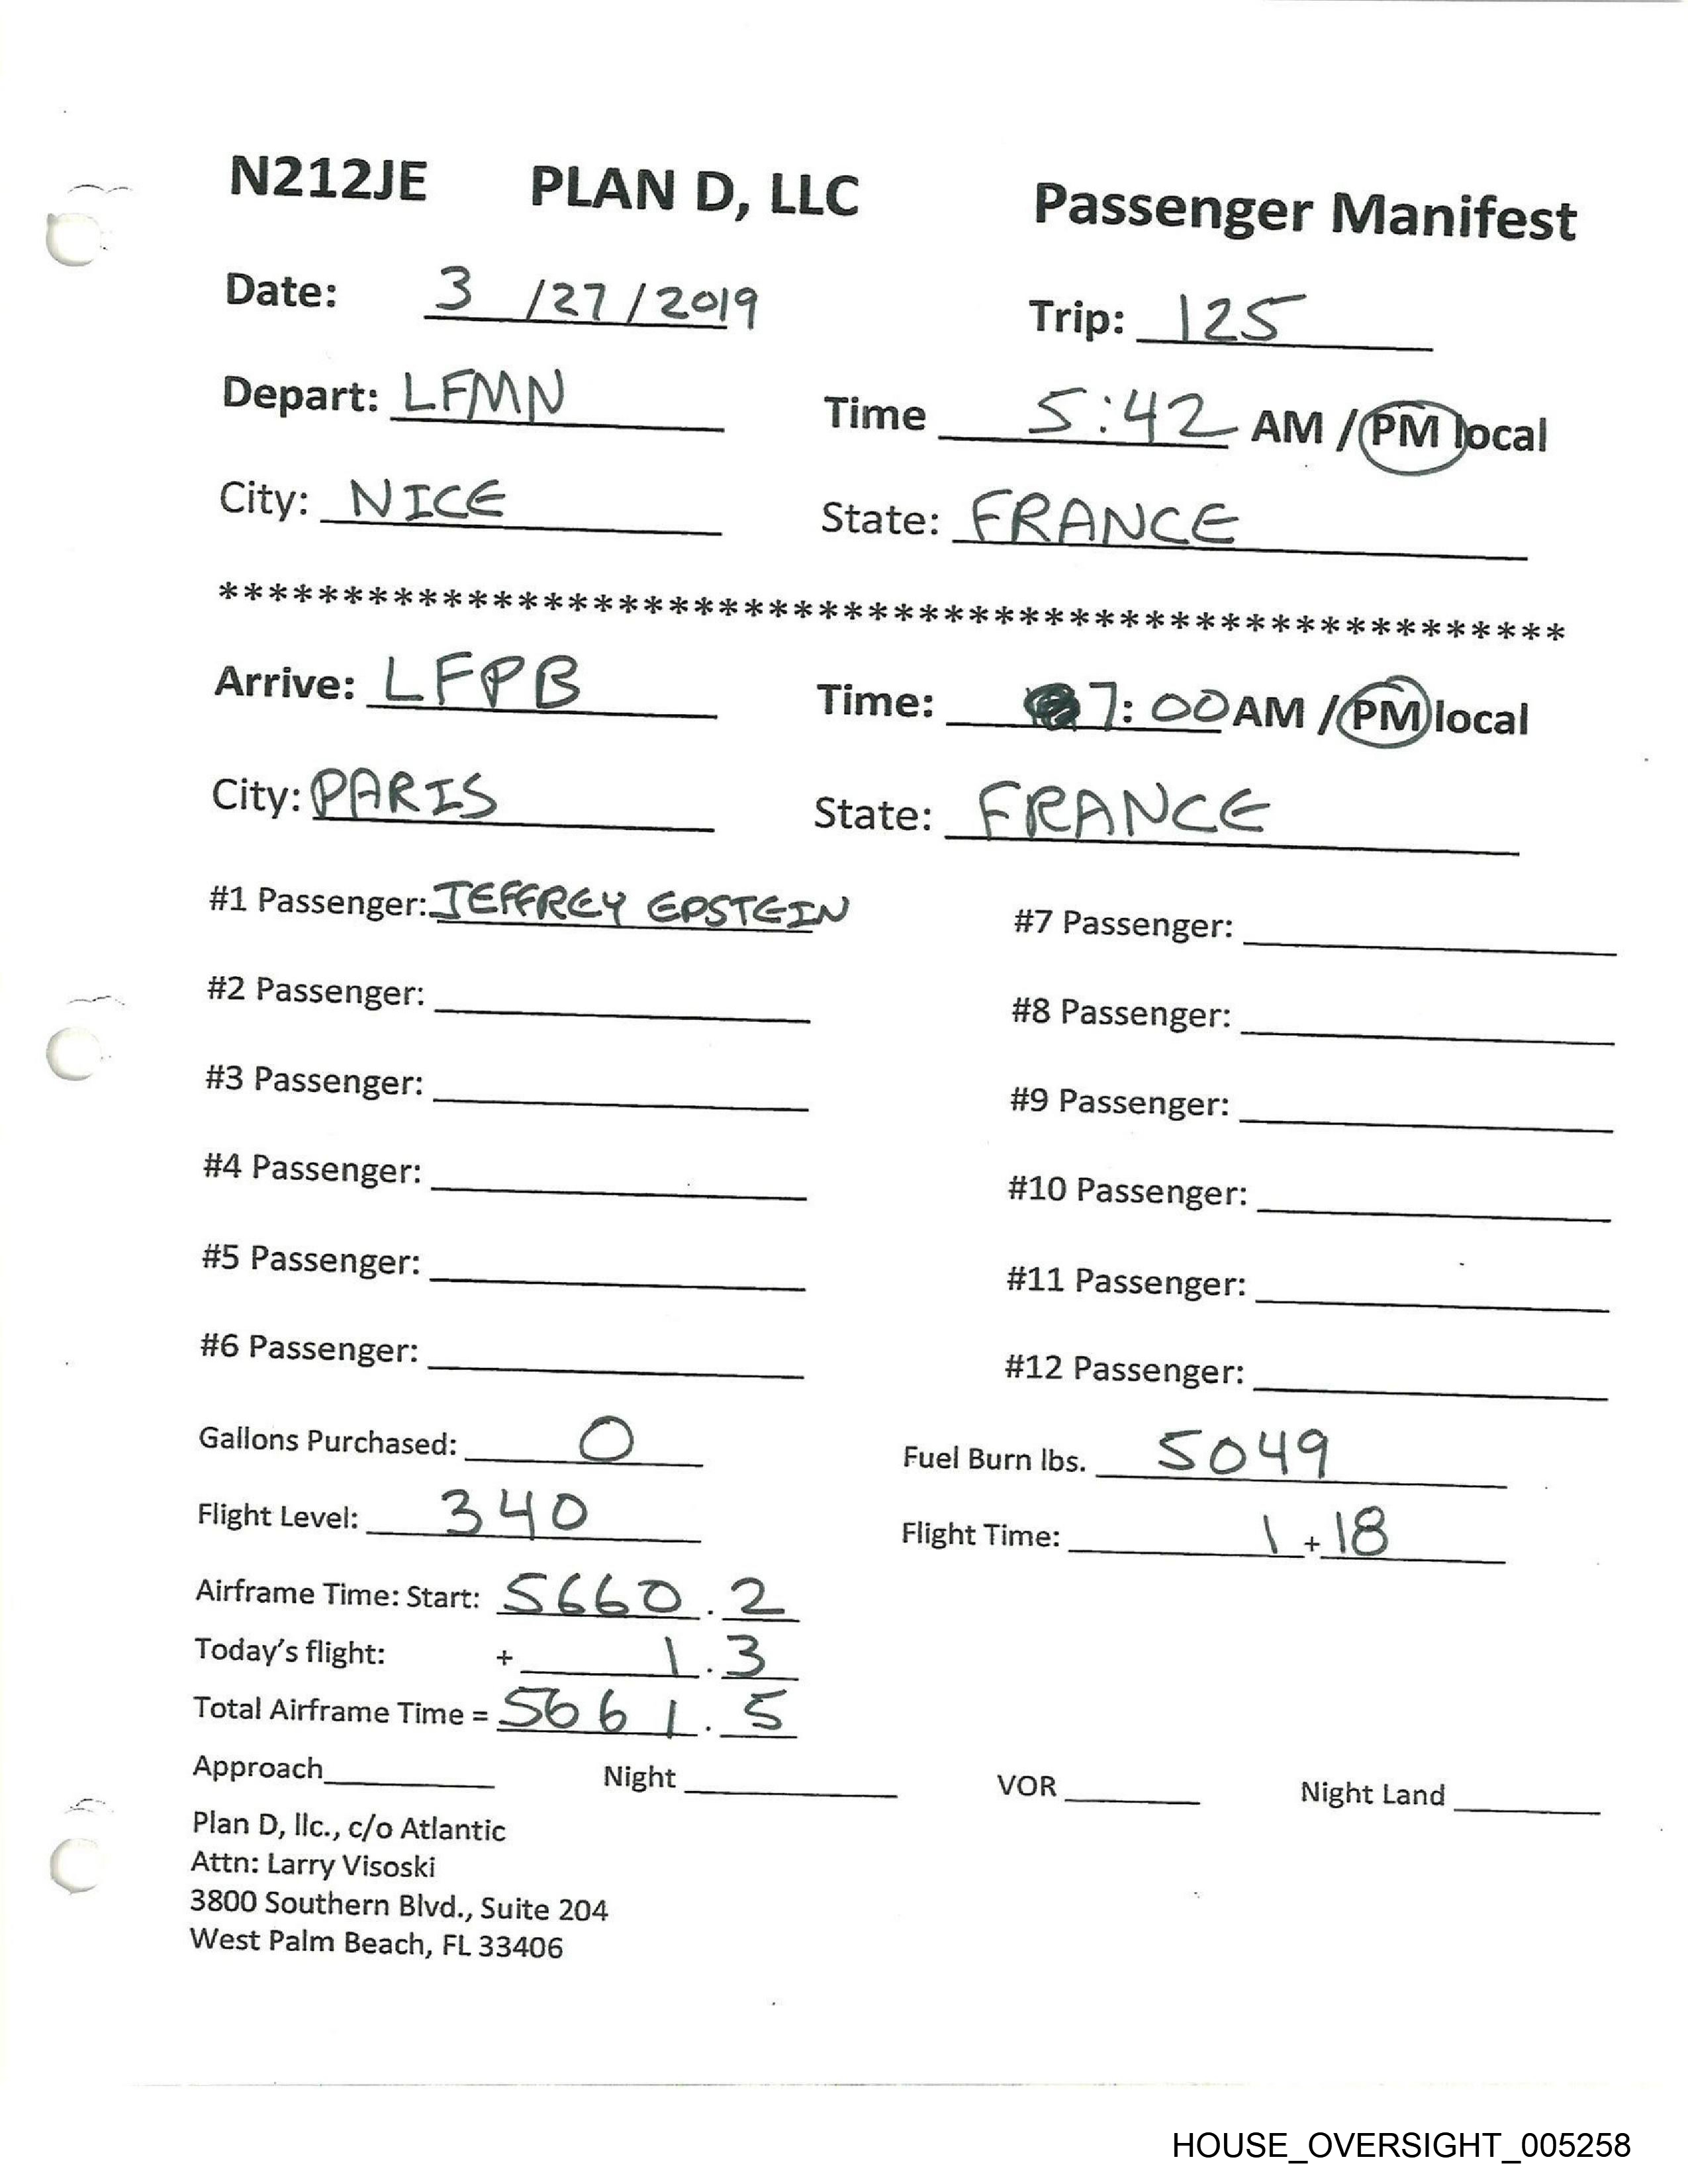 N212JE PLAN D, LLC Passenger Manifest
Date: 3 /27/2019 Trip: 125
Depart: LFMN Time 5:42 AM / PM local
City: NICE State: FRANCE
******************************************************
Arrive: LFPB Time: 7:00 AM / PM local
City: PARIS State: FRANCE
#1 Passenger: JEFFREY EPSTEIN #7 Passenger:
#2 Passenger: #8 Passenger:
#3 Passenger: #9 Passenger:
#4 Passenger: #10 Passenger:
#5 Passenger: #11 Passenger:
#6 Passenger: #12 Passenger:
Gallons Purchased: 0 Fuel Burn lbs. 5049
Flight Level: 340 Flight Time: 1 + 18
Airframe Time: Start: 5660.2
Today's flight: + 1.3
Total Airframe Time = 5661.5
Approach Night VOR Night Land
Plan D, llc., c/o Atlantic
Attn: Larry Visoski
3800 Southern Blvd., Suite 204
West Palm Beach, FL 33406
HOUSE_OVERSIGHT_005258